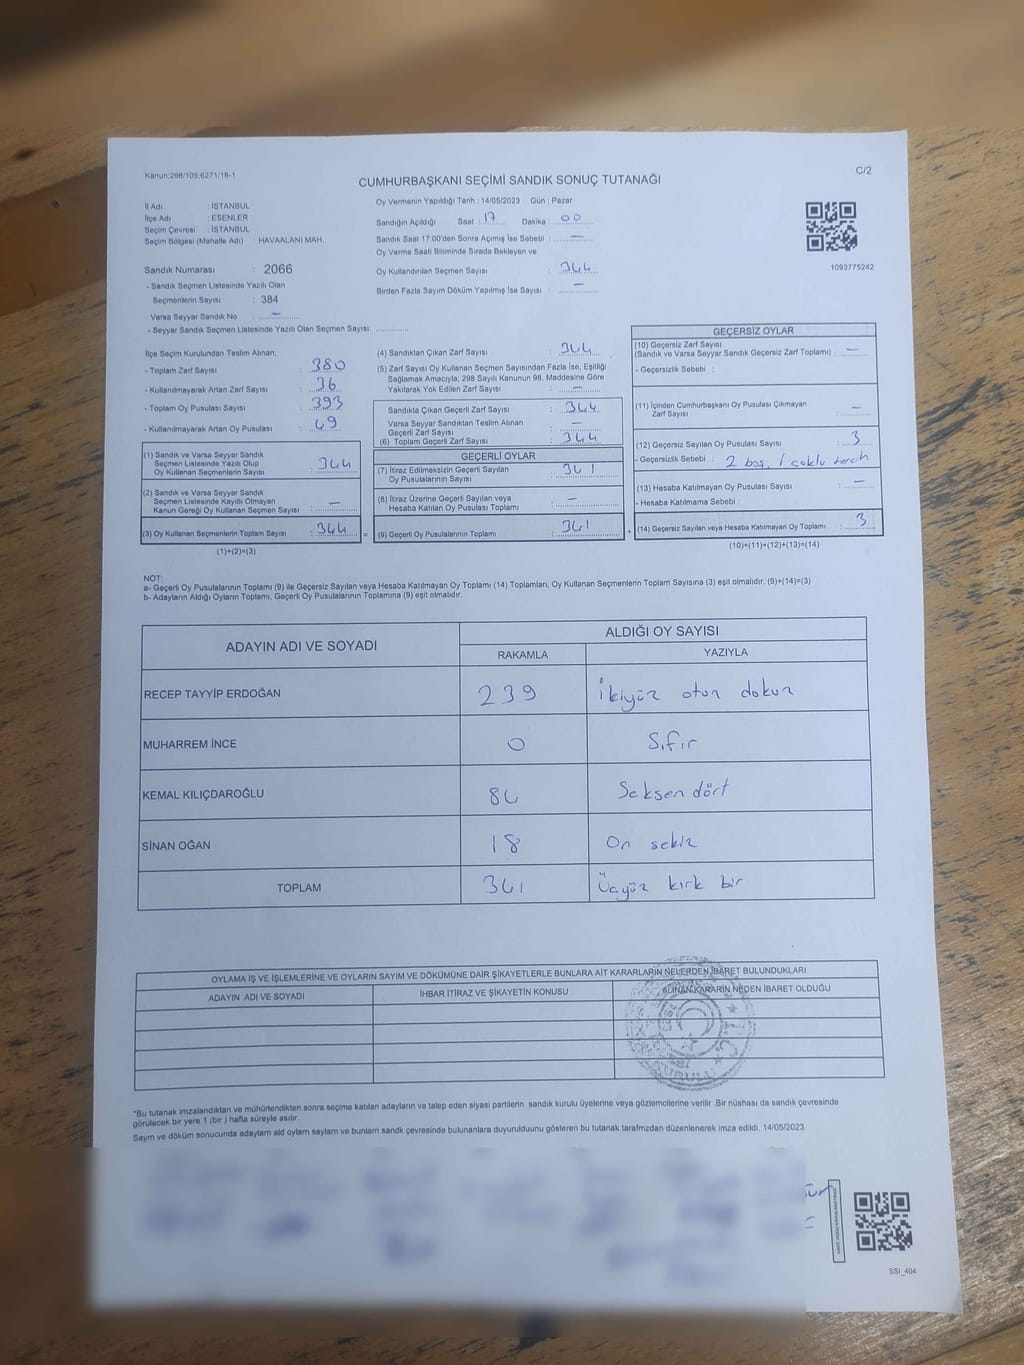 Kanun;298/105;6271/18-1
C/2
CUMHURBAŞKANI SEÇİMİ SANDIK SONUÇ TUTANAĞI
İl Adı : İSTANBUL
İlçe Adı : ESENLER
Seçim Çevresi : İSTANBUL
Seçim Bölgesi (Mahalle Adı) : HAVAALANI MAH.
Sandık Numarası : 2066
- Sandık Seçmen Listesinde Yazılı Olan
Seçmenlerin Sayısı : 384
Varsa Seyyar Sandık No : —
- Seyyar Sandık Seçmen Listesinde Yazılı Olan Seçmen Sayısı: ............
Oy Vermenin Yapıldığı Tarih : 14/05/2023 Gün : Pazar
Sandığın Açıldığı Saat : 17 Dakika : 00
Sandık Saat 17:00'den Sonra Açımış İse Sebebi : —
Oy Verme Saati Bitiminde Sırada Bekleyen ve
Oy Kullandırılan Seçmen Sayısı : 344
Birden Fazla Sayım Döküm Yapılmış İse Sayısı : —
1093775242
İlçe Seçim Kurulundan Teslim Alınan;
- Toplam Zarf Sayısı : 380
- Kullanılmayarak Artan Zarf Sayısı : 36
- Toplam Oy Pusulası Sayısı : 393
- Kullanılmayarak Artan Oy Pusulası : 49
(1) Sandık ve Varsa Seyyar Sandık
Seçmen Listesinde Yazılı Olup
Oy Kullanan Seçmenlerin Sayısı : 344
(2) Sandık ve Varsa Seyyar Sandık
Seçmen Listesinde Kayıtlı Olmayan
Kanun Gereği Oy Kullanan Seçmen Sayısı : —
(3) Oy Kullanan Seçmenlerin Toplam Sayısı : 344
(1)+(2)=(3)
(4) Sandıktan Çıkan Zarf Sayısı : 344
(5) Zarf Sayısı Oy Kullanan Seçmen Sayısından Fazla İse, Eşitliği
Sağlamak Amacıyla; 298 Sayılı Kanunun 98. Maddesine Göre
Yakılarak Yok Edilen Zarf Sayısı : —
Sandıkta Çıkan Geçerli Zarf Sayısı : 344
Varsa Seyyar Sandıktan Teslim Alınan
Geçerli Zarf Sayısı : —
(6) Toplam Geçerli Zarf Sayısı : 344
GEÇERLİ OYLAR
(7) İtiraz Edilmeksizin Geçerli Sayılan
Oy Pusulasının Sayısı : 341
(8) İtiraz Üzerine Geçerli Sayılan veya
Hesaba Katılan Oy Pusulası Toplamı : —
(9) Geçerli Oy Pusulalarının Toplamı : 341
GEÇERSİZ OYLAR
(10) Geçersiz Zarf Sayısı
(Sandık ve Varsa Seyyar Sandık Geçersiz Zarf Toplamı) : —
- Geçersizlik Sebebi :
(11) İçinden Cumhurbaşkanı Oy Pusulası Çıkmayan
Zarf Sayısı : —
(12) Geçersiz Sayılan Oy Pusulası Sayısı : 3
- Geçersizlik Sebebi : 2 boş, 1 çoklu tercih
(13) Hesaba Katılmayan Oy Pusulası Sayısı : —
- Hesaba Katılmama Sebebi :
(14) Geçersiz Sayılan veya Hesaba Katılmayan Oy Toplamı : 3
(10)+(11)+(12)+(13)=(14)
NOT:
a- Geçerli Oy Pusulalarının Toplamı (9) ile Geçersiz Sayılan veya Hesaba Katılmayan Oy Toplamı (14) Toplamları, Oy Kullanan Seçmenlerin Toplam Sayısına (3) eşit olmalıdır. (9)+(14)=(3)
b- Adayların Aldığı Oyların Toplamı, Geçerli Oy Pusulalarının Toplamına (9) eşit olmalıdır.
ADAYIN ADI VE SOYADI
ALDIĞI OY SAYISI
RAKAMLA YAZIYLA
RECEP TAYYİP ERDOĞAN 239 İkiyüz otuz dokuz
MUHARREM İNCE 0 Sıfır
KEMAL KILIÇDAROĞLU 84 Seksen dört
SİNAN OĞAN 18 On sekiz
TOPLAM 341 Üçyüz kırk bir
OYLAMA İŞ VE İŞLEMLERİNE VE OYLARIN SAYIM VE DÖKÜMÜNE DAİR ŞİKAYETLERLE BUNLARA AİT KARARLARIN NELERDEN İBARET BULUNDUKLARI
ADAYIN ADI VE SOYADI İHBAR İTİRAZ VE ŞİKAYETİN KONUSU ALINAN KARARIN NEDEN İBARET OLDUĞU
T.C.
KURULU
*Bu tutanak imzalandıktan ve mühürlendikten sonra seçime katılan adayların ve talep eden siyasi partilerin sandık kurulu üyelerine veya gözlemcilerine verilir .Bir nüshası da sandık çevresinde
görülecek bir yere 1 (bir ) hafta süreyle asılır.
Sayım ve döküm sonucunda adayların aldı oyların sayıları ve bunların sandık çevresinde bulunanlara duyurulduunu gösteren bu tutanak tarafımzdan düzenlenerek imza edildi. 14/05/2023
SSI_404